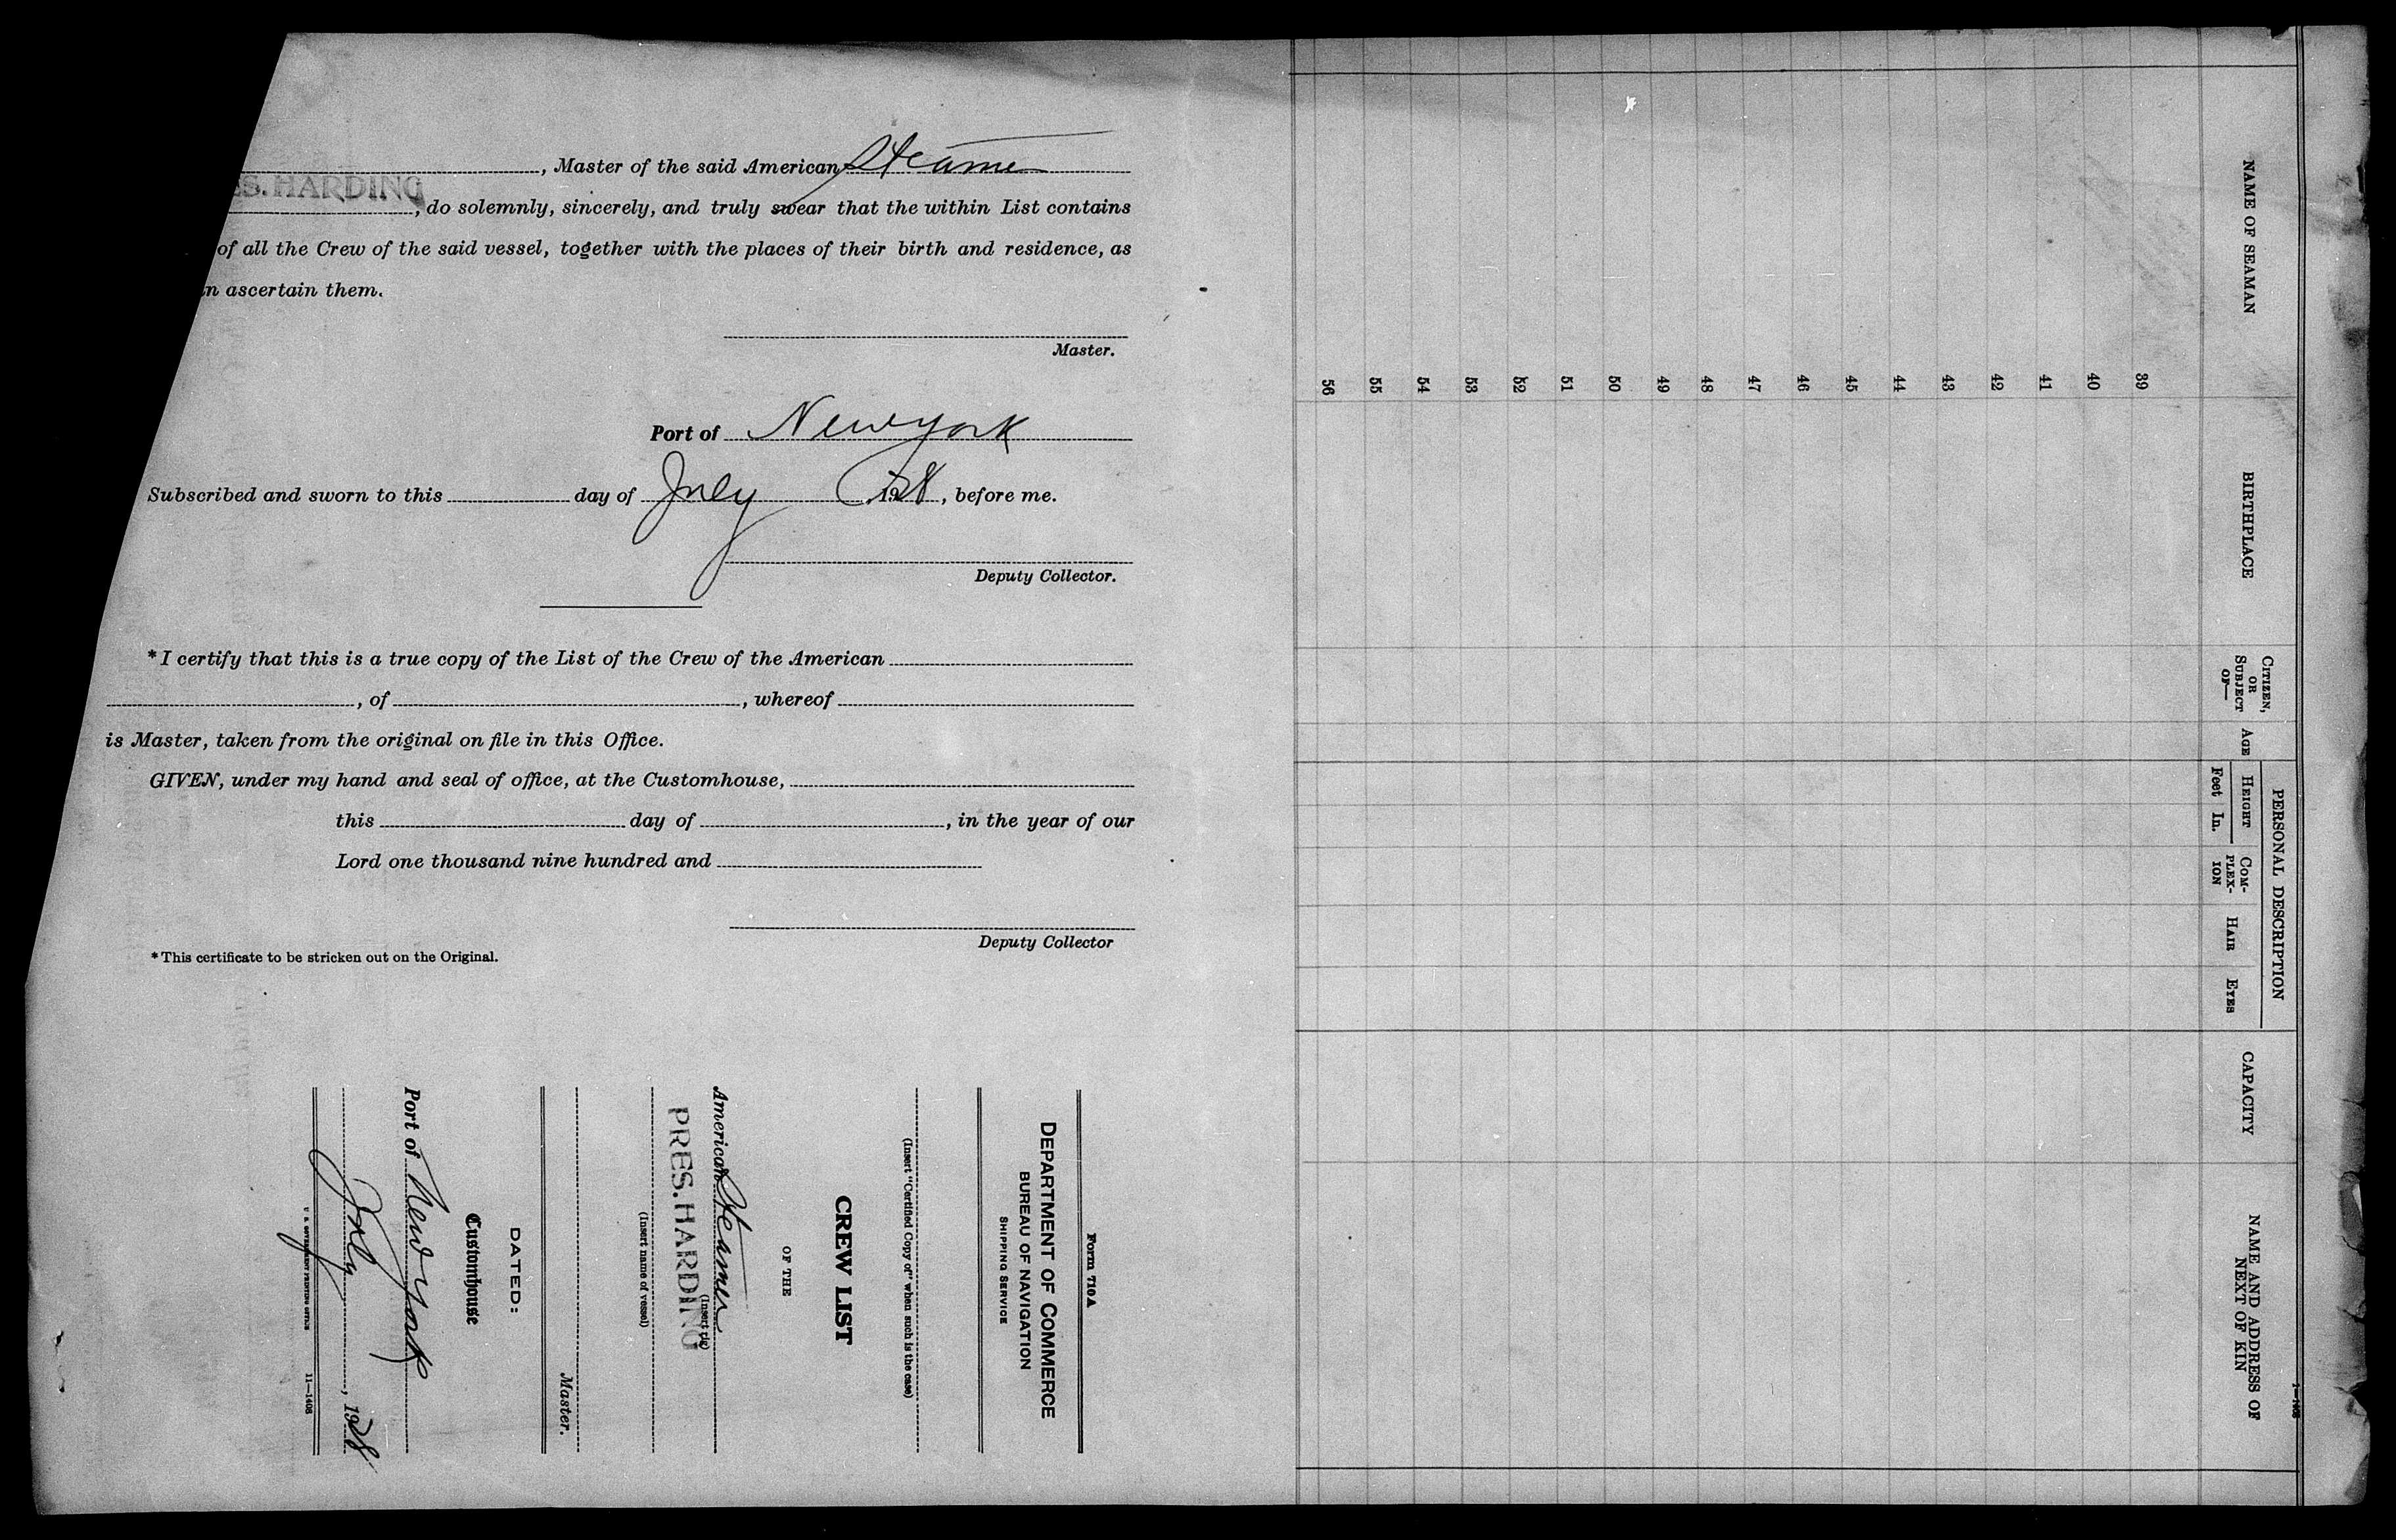 , Master of the said American Steamer
ES. HARDING, do solemnly, sincerely, and truly swear that the within List contains
of all the Crew of the said vessel, together with the places of their birth and residence, as
n ascertain them.
Master.
Port of New York
Subscribed and sworn to this day of July 1928, before me.
Deputy Collector.
*I certify that this is a true copy of the List of the Crew of the American
, of , whereof
is Master, taken from the original on file in this Office.
GIVEN, under my hand and seal of office, at the Customhouse,
this day of , in the year of our
Lord one thousand nine hundred and
Deputy Collector
*This certificate to be stricken out on the Original.
Form 710A
DEPARTMENT OF COMMERCE
BUREAU OF NAVIGATION
SHIPPING SERVICE
(Insert "Certified Copy of" when such is the case)
CREW LIST
OF THE
American Steamer
(Insert rig)
PRES. HARDING
(Insert name of vessel)
Master.
DATED:
Customhouse
Port of New York
July, 1928
U. S. GOVERNMENT PRINTING OFFICE 11—1408
NAME OF SEAMAN
BIRTHPLACE
CITIZEN, OR SUBJECT OF—
AGE
PERSONAL DESCRIPTION
HEIGHT
Feet In.
COM-PLEX-ION
HAIR
EYES
CAPACITY
NAME AND ADDRESS OF NEXT OF KIN
39
40
41
42
43
44
45
46
47
48
49
50
51
52
53
54
55
56